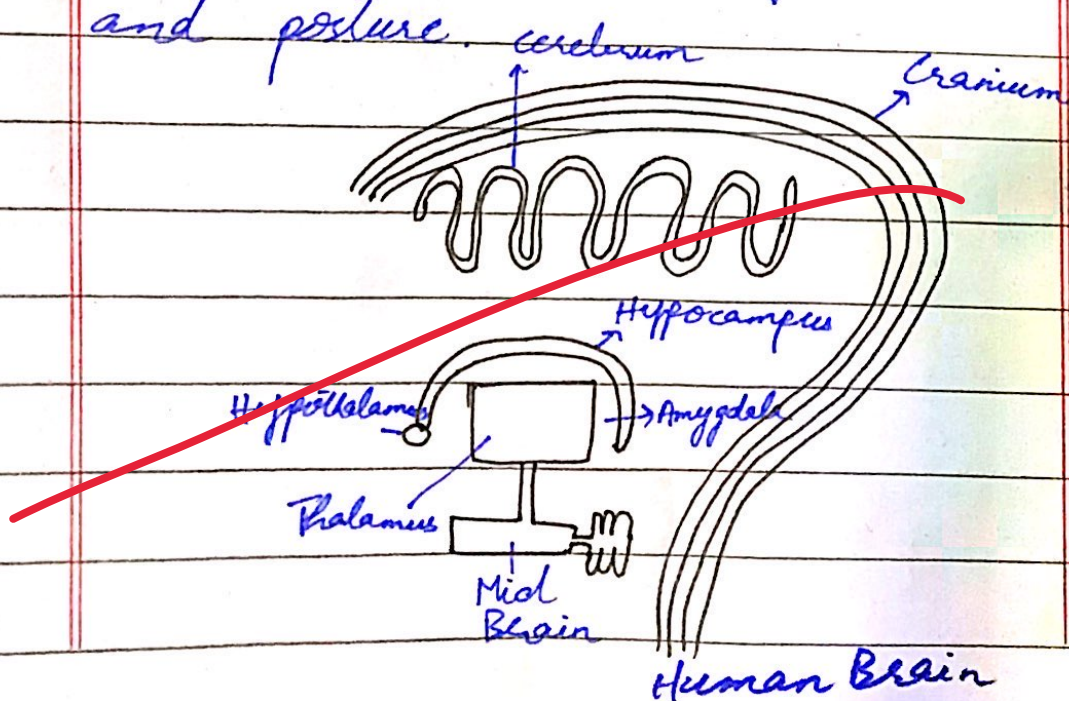 and posture.
cerebrum
Cranium
Hyppocampus
Hyppothalamus
Amygdala
Thalamus
Mid
Brain
Human Brain